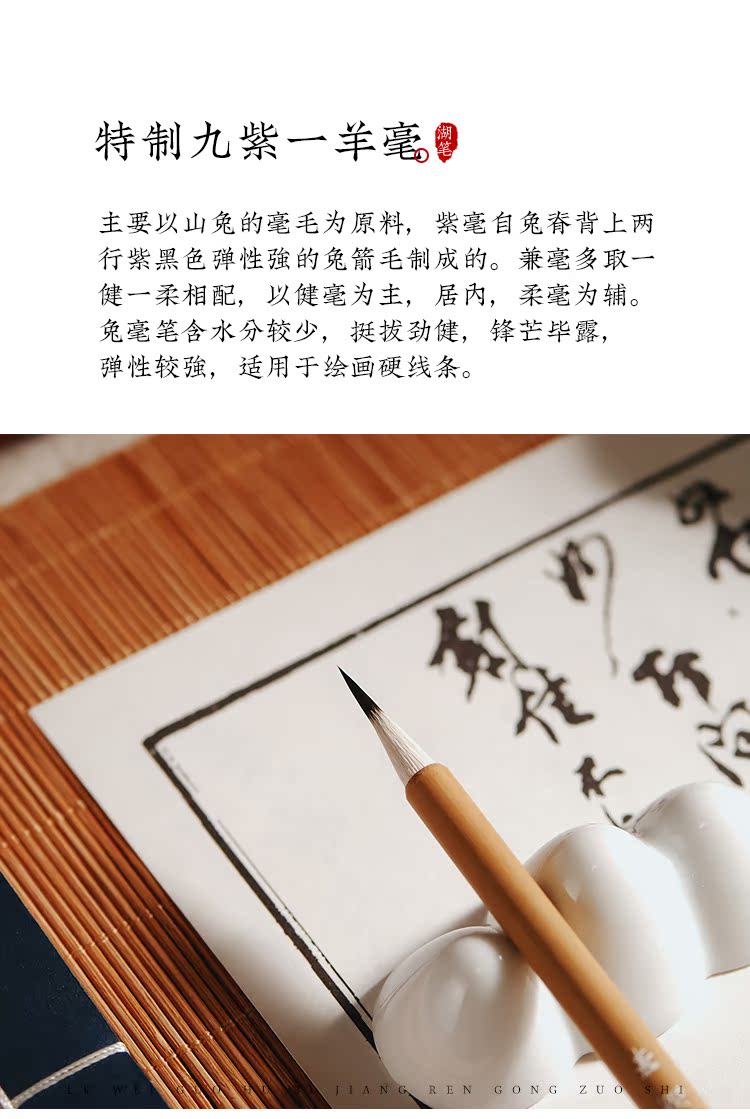 特制九紫一羊毫
湖笔
主要以山兔的毫毛为原料，紫毫自兔脊背上两
行紫黑色弹性強的兔箭毛制成的。兼毫多取一
健一柔相配，以健毫为主，居內，柔毫为辅。
兔毫笔含水分较少，挺拔劲健，锋芒毕露，
弹性较強，适用于绘画硬线条。
JIANG REN GONG ZUO SHI